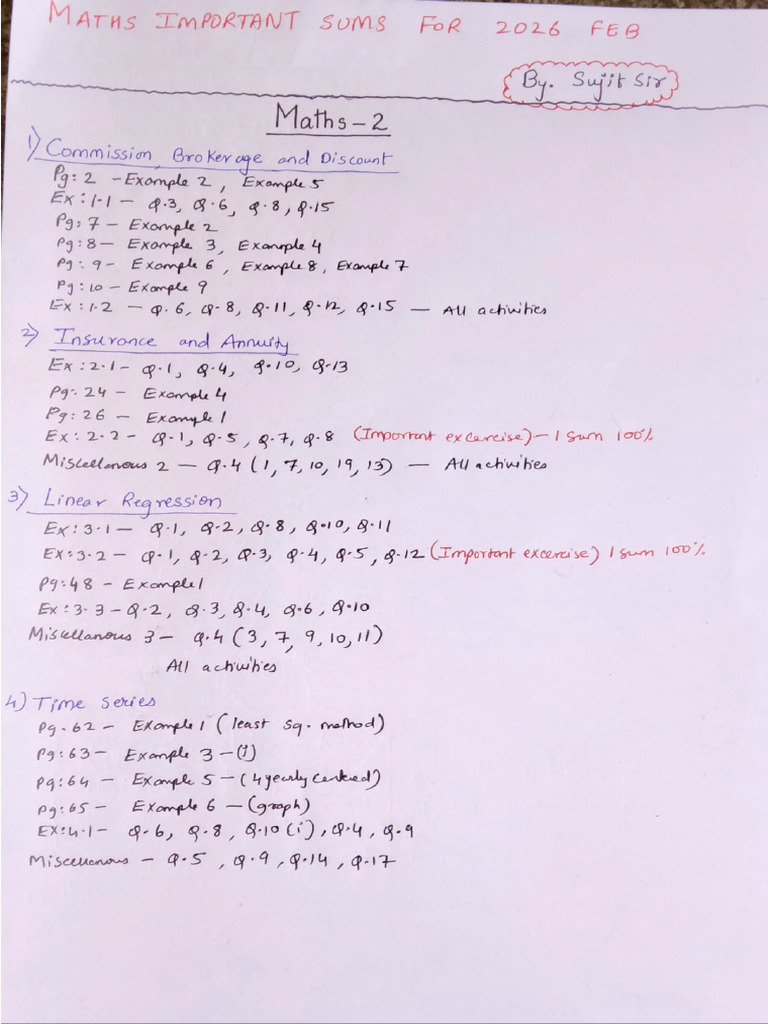 MATHS IMPORTANT SUMS FOR 2026 FEB
By. Sujit Sir
Maths-2
1) Commission, Brokerage and Discount
Pg: 2 - Example 2, Example 5
Ex: 1.1 - Q.3, Q.6, Q.8, Q.15
Pg: 7 - Example 2
Pg: 8 - Example 3, Example 4
Pg: 9 - Example 6, Example 8, Example 7
Pg: 10 - Example 9
Ex: 1.2 - Q.6, Q.8, Q.11, Q.12, Q.15 - All activities
2) Insurance and Annuity
Ex: 2.1 - Q.1, Q.4, Q.10, Q.13
Pg. 24 - Example 4
Pg: 26 - Example 1
Ex: 2.2 - Q.1, Q.5, Q.7, Q.8 (Important excercise) - 1 sum 100%
Miscellanous 2 - Q.4 (1, 7, 10, 19, 13) - All activities
3) Linear Regression
Ex: 3.1 - Q.1, Q.2, Q.8, Q.10, Q.11
Ex: 3.2 - Q.1, Q.2, Q.3, Q.4, Q.5, Q.12 (Important excercise) 1 sum 100%
Pg: 48 - Example 1
Ex: 3.3 - Q.2, Q.3, Q.4, Q.6, Q.10
Miscellanous 3 - Q.4 (3, 7, 9, 10, 11)
All activities
4) Time Series
Pg. 62 - Example 1 (least sq. method)
Pg: 63 - Example 3 - (i)
Pg: 64 - Example 5 - (4 yearly centred)
Pg: 65 - Example 6 - (graph)
Ex: 4.1 - Q.6, Q.8, Q.10 (i), Q.4, Q.9
Miscellanous - Q.5, Q.9, Q.14, Q.17